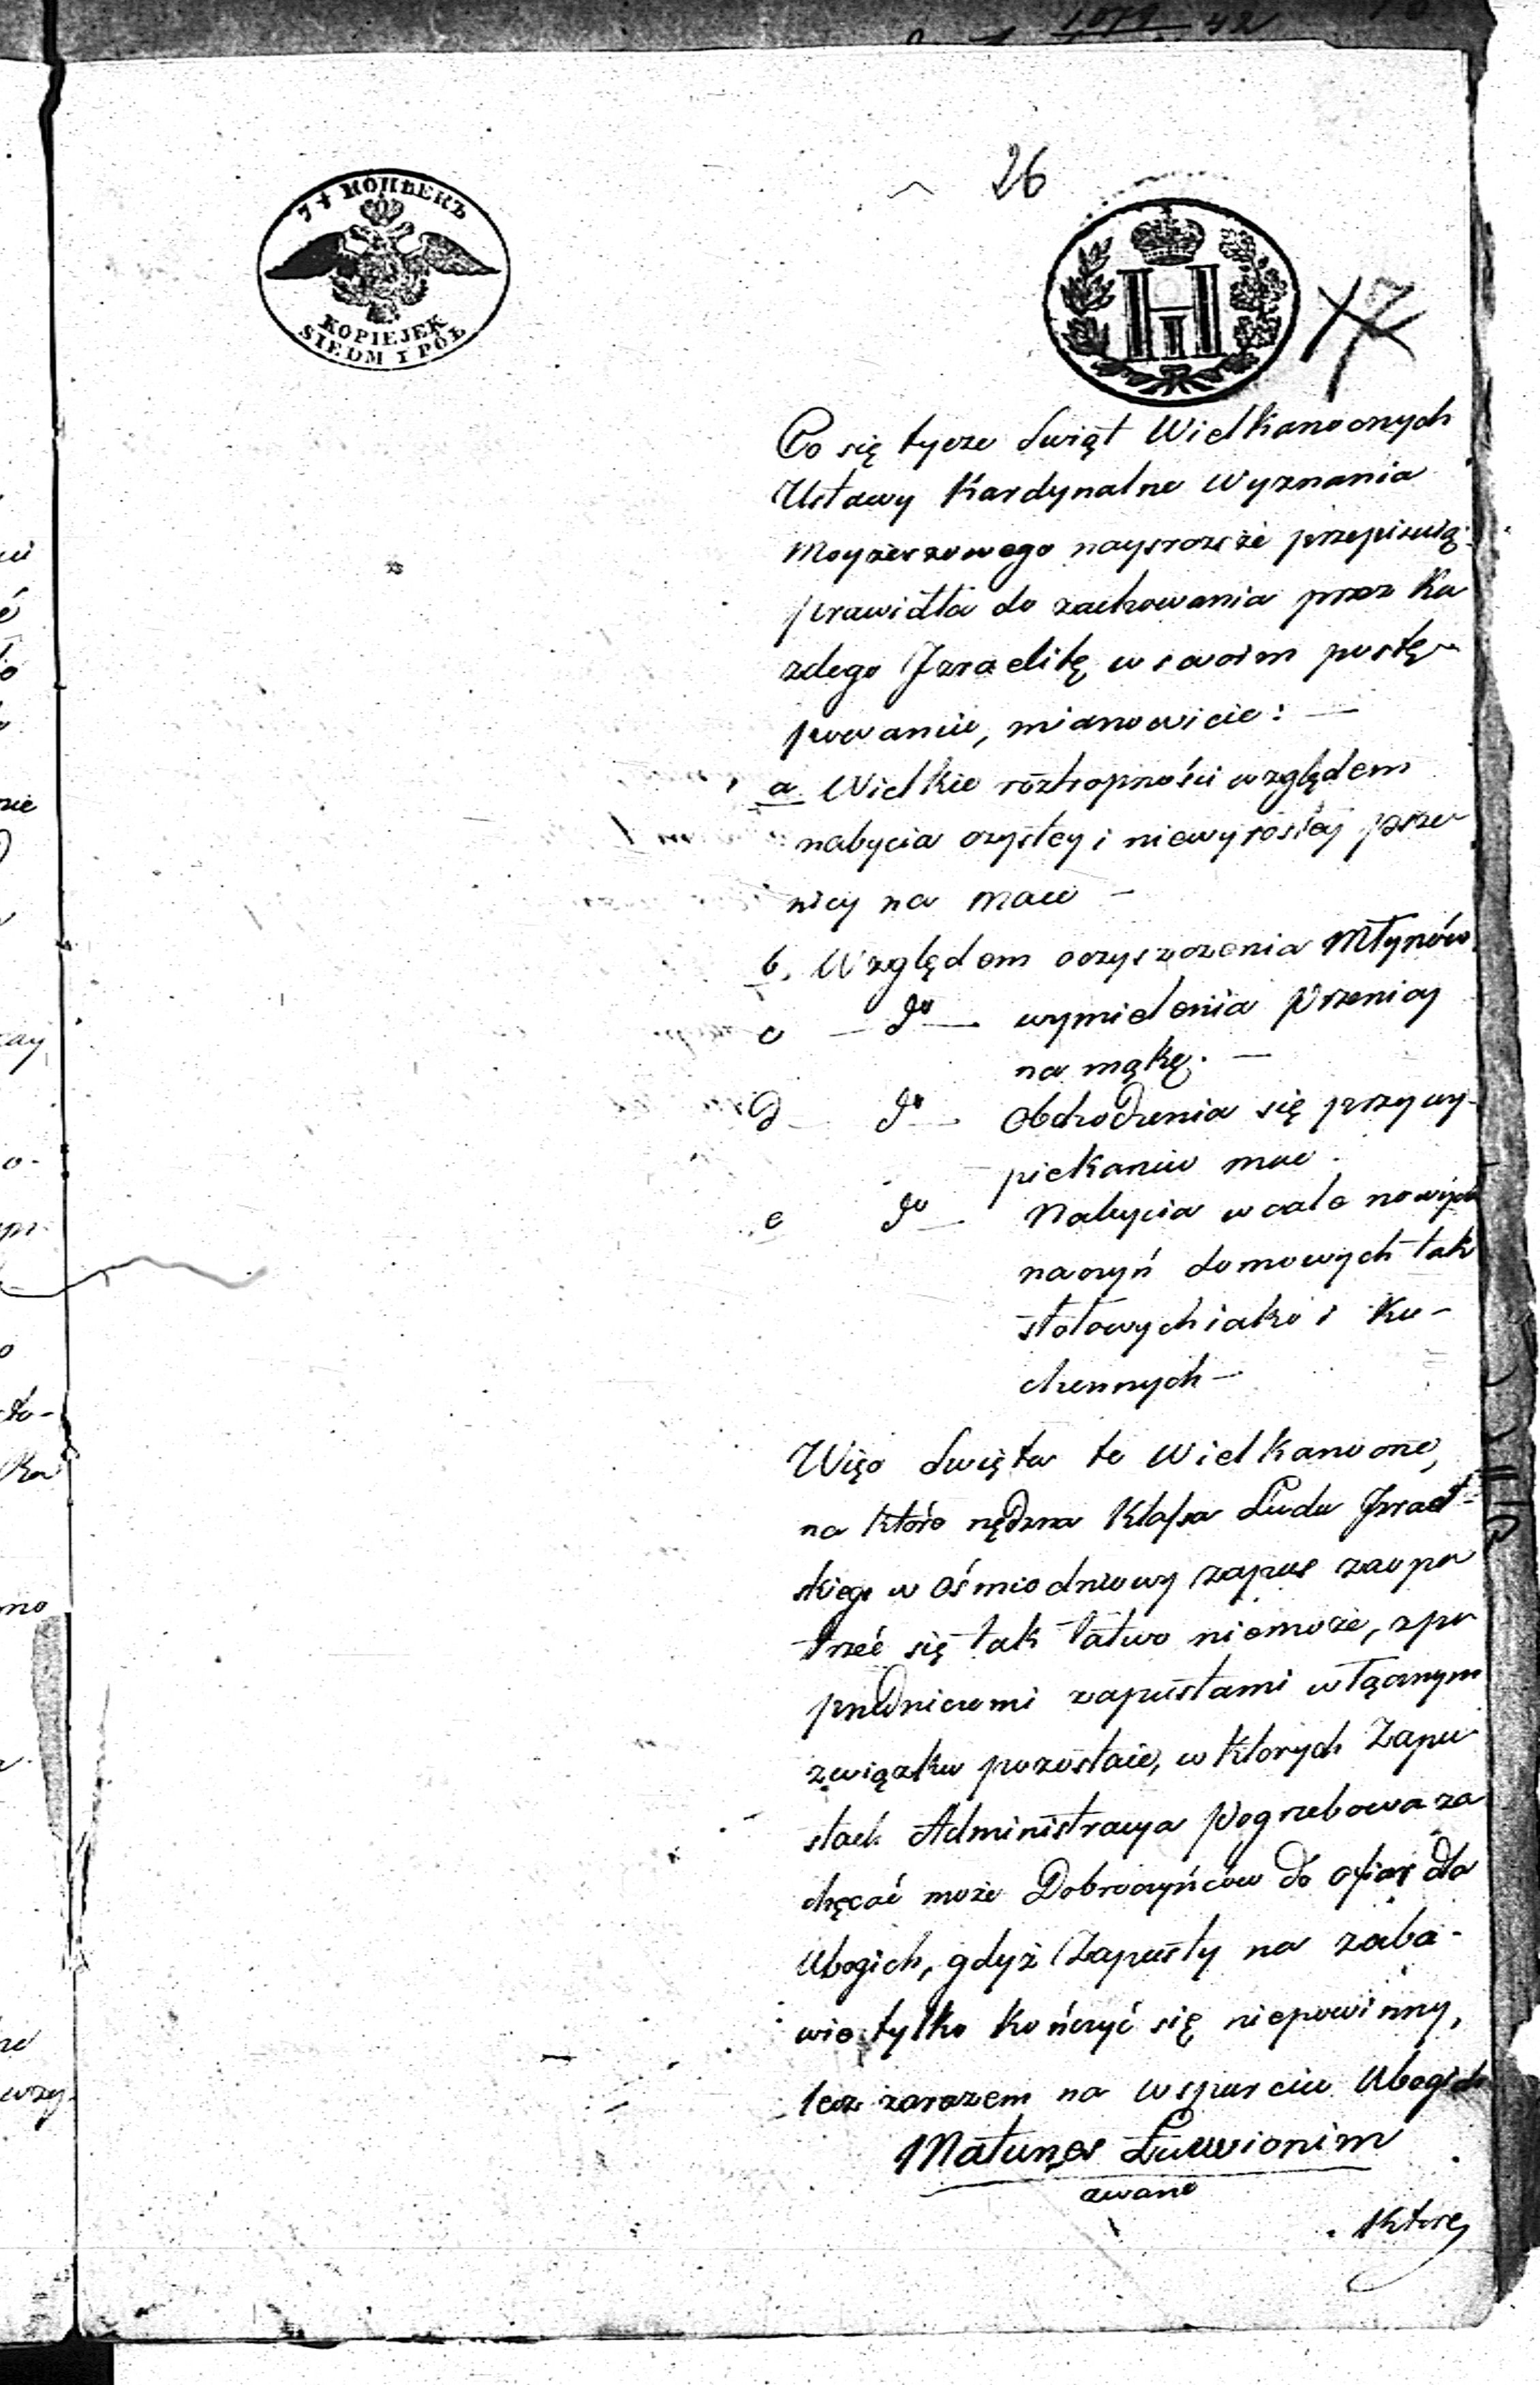 26
7½ КОПѢЕКЪ
KOPIEJEK
SIEDM I PÓŁ
17
Co się tycze Swiąt Wielkanocnych
Ustawy Kardynalne Wyznania
Moyżeszowego naysrozsze przepisuią
prawidła do zachowania przez Ka
żdego Izraelitę w swoim postę-
powaniu, mianowicie: —
a. Wielkie roztropności względem
nabycia czystey i niewyrosłey psze
nicy na mace —
b. Względem oczyszczenia Młynów
c — do — wymielenia Pszenicy
na mąkę. —
d — do — Obchodzenia się przy wy-
piekaniu mac.
e do — Nabycia wcale nowych
naczyń domowych tak
stołowych iako i Ku-
chennych —
Więc Swięta te Wielkanocne,
na które nędzna Klassa Ludu Izrael-
skiego w ośmiodniowy zapas zaopa
trzeć się tak łatwo niemoże, z po
przedniczemi zapustami w łącznym
związku pozostaie, w których Zapu
stach Administracya Pogrzebowa za
chęcać może Dobroczyńców do ofiar dla
Ubogich, gdyż Zapusty na zaba-
wie tylko kończyć się niepowinny,
lecz zarazem na wsparciu Ubogich
Matunes Luwionim
zwane
które